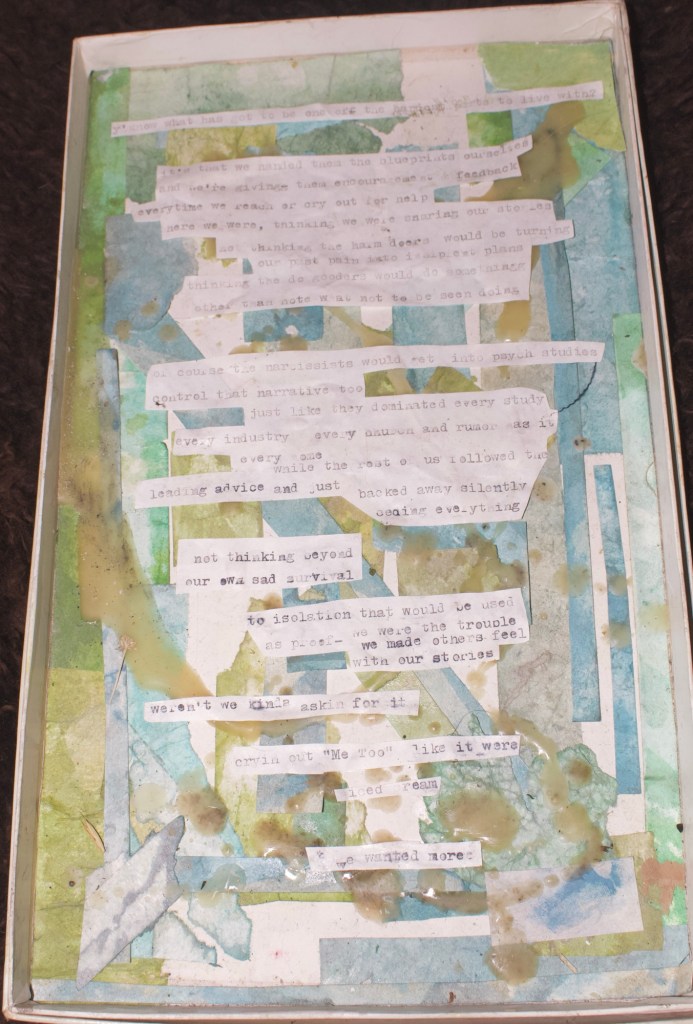 y'know what has got to be one of the hardest parts to live with?
it's that we handed them the blueprints ourselves
and we're giving them encouragement feedback
everytime we reach or cry out for help
here we were, thinking we were sharing our stories
not thinking the harm doers would be turning
our past pain into incipient plans
thinking the do gooders would do somethingg
other than note what not to be seen doing
of course the narcissists would get into psych studies
control that narrative too
just like they dominated every study
every industry every church and rumor as it
every
while the rest of us followed the
leading advice and just backed away silently
seeing everything
not thinking beyond
our own sad survival
to isolation that would be used
as proof- we were the trouble
we made others feel
with our stories
weren't we kinda askin for it
cryin out "Me Too" like it were
iced ream
& we wanted more